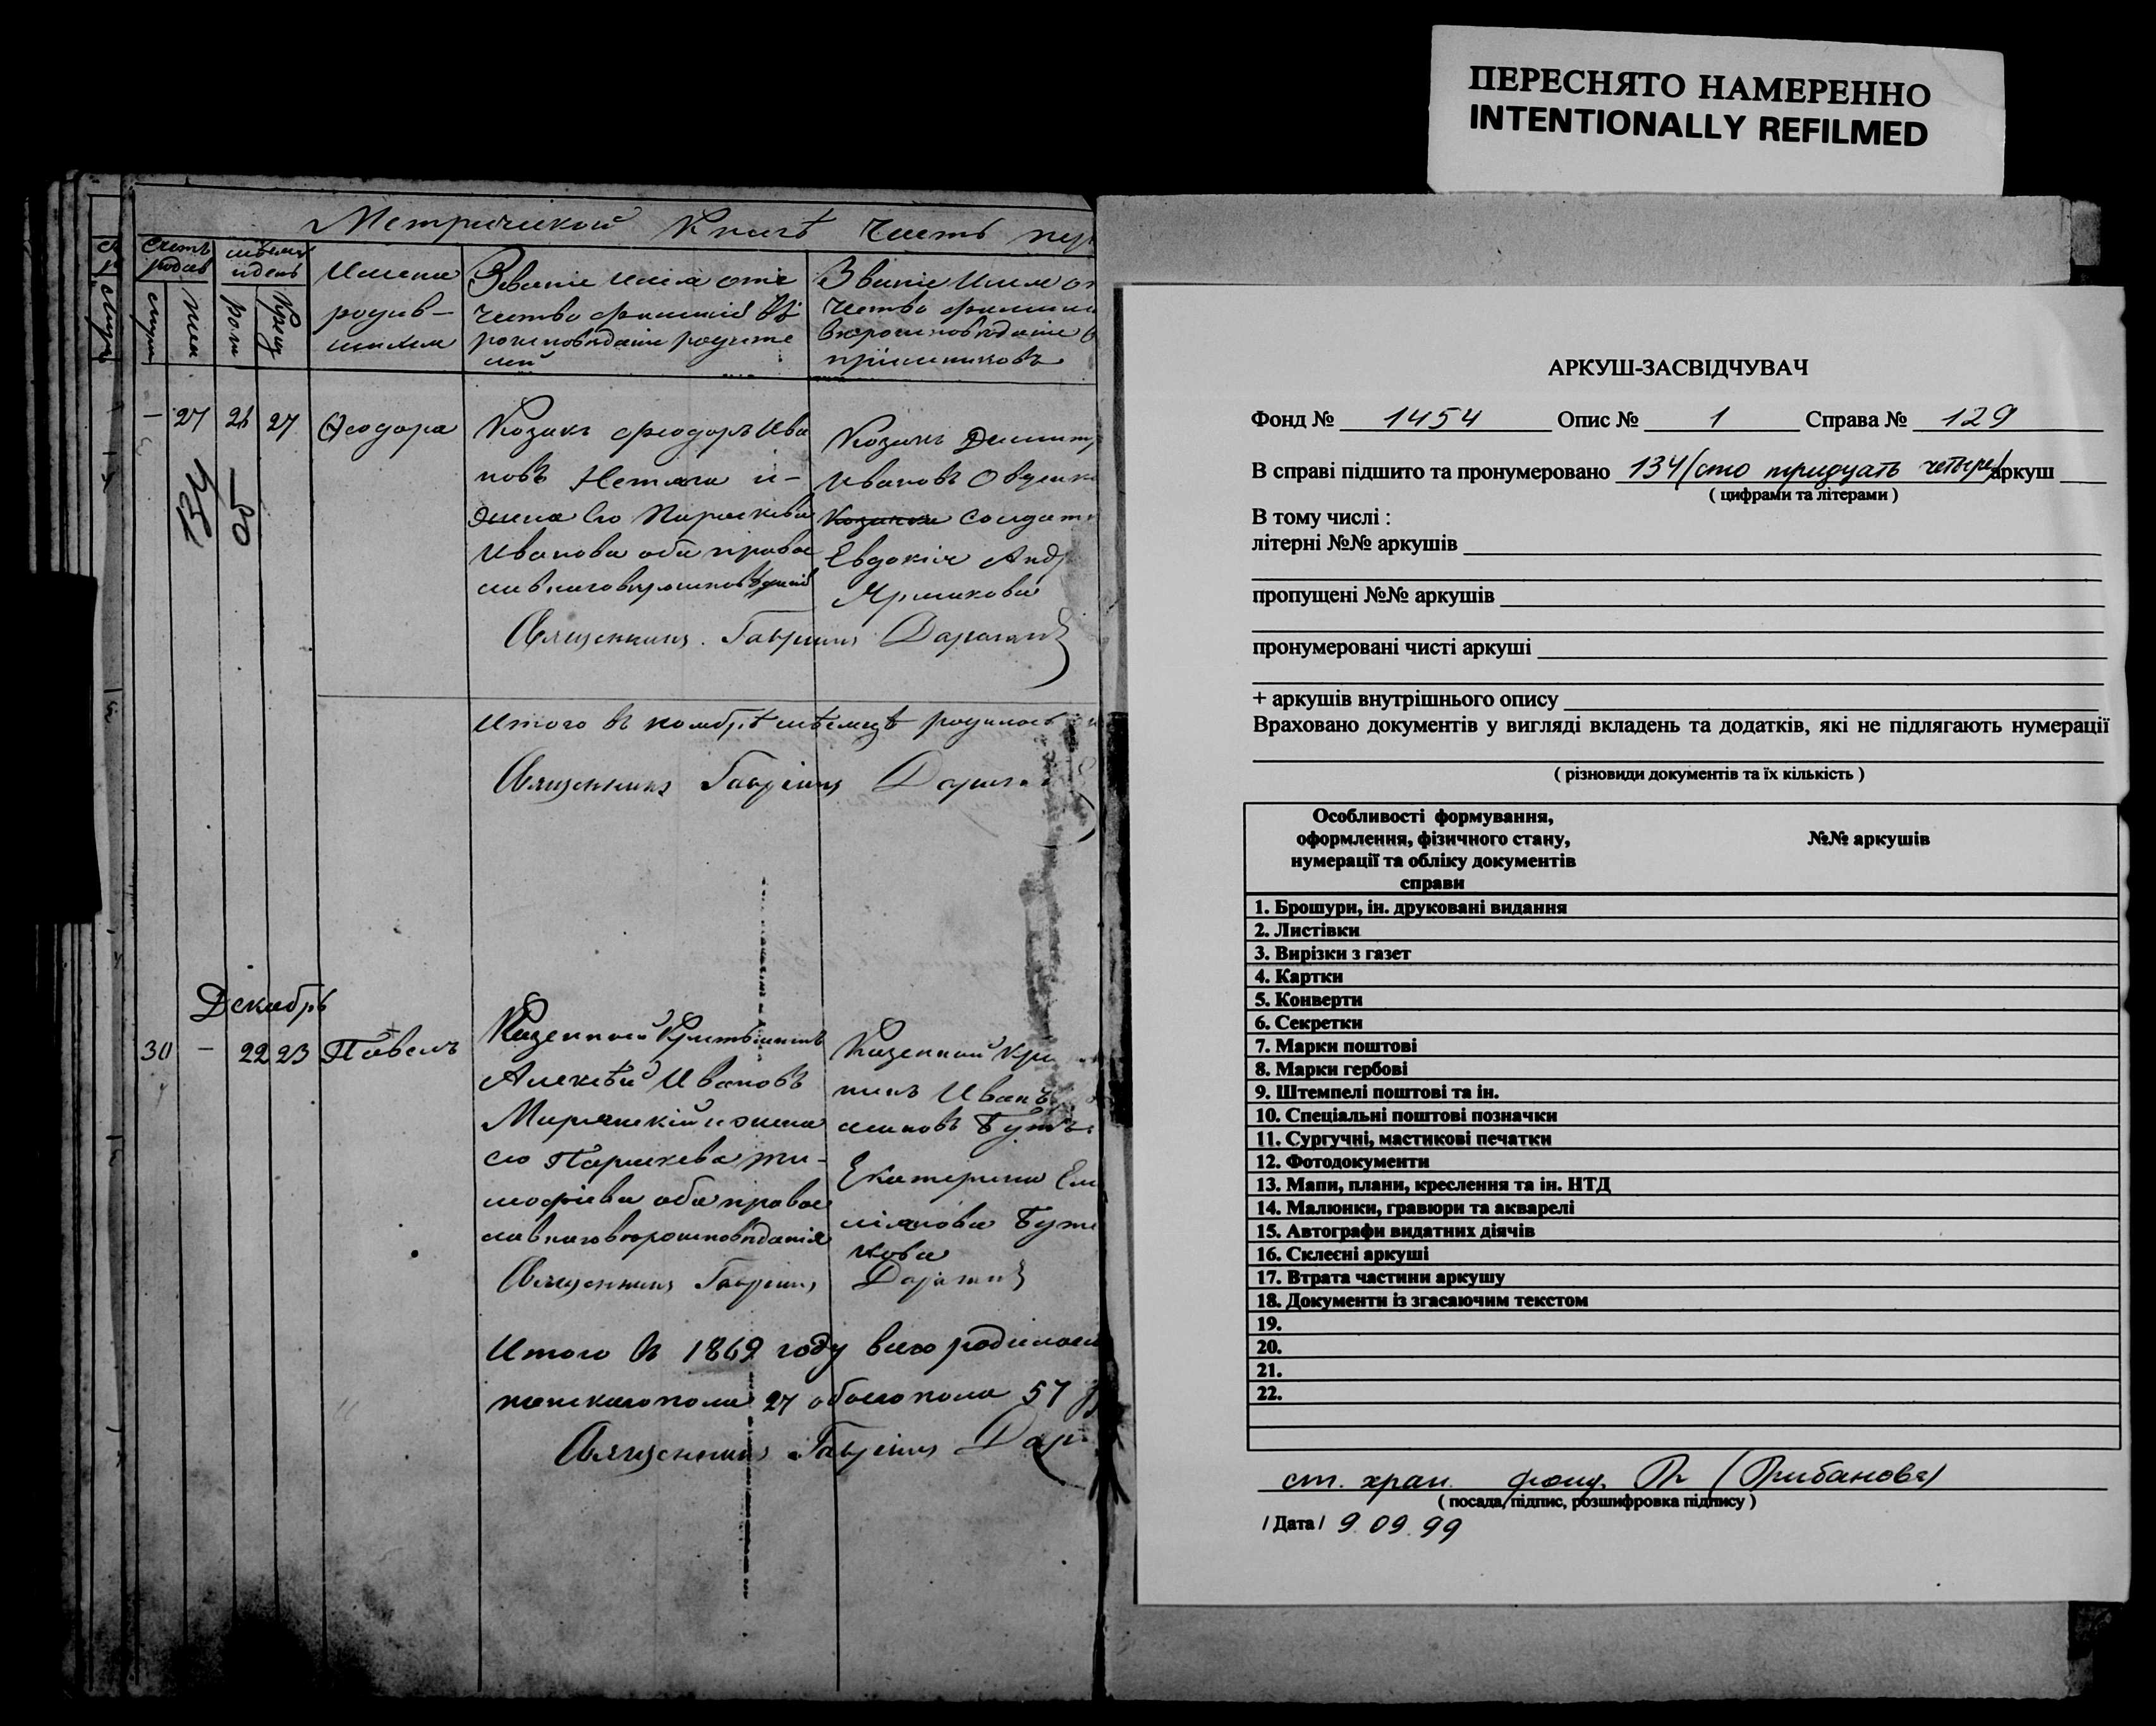 ПЕРЕСНЯТО НАМЕРЕННО
INTENTIONALLY REFILMED
Метрической Книгѣ Часть
Счетъ
родив
Имена
родив-
шихся
Званіе Имя отe
чество фамилія
роисповѣданіе родите
лей
Званіе Имя
чество фамилия
вѣроисповѣданіе
пріемниковъ
— 27 26 27 Ѳеодора
134
50
Козакъ Ѳеодоръ Ива
новъ Нетяга и-
жена Его Параскева
Иванова оба правос
лавнаговѣроисповѣданія
Козакъ Димитр
Ивановъ
Козачка солдат
Евдокія Андр
Священникъ Гавріилъ
Итого въ ноябрѣ мѣсяцѣ родилось
Священникъ Гавріилъ
Декабрь
30 — 22 23 Павелъ
Казенный Крестьянинъ
Алексѣй Ивановъ
и жена
его Параскева Ти-
мофіева оба правос
лавнаговѣроисповѣданія
Казенный Кре
нинъ Иванъ
Екатерина Еме
ліянова
кова
Священникъ Гавріилъ
Итого въ 1869 году всего родилось
женскаго пола 27 обоего пола 57
Священникъ Гавріилъ
АРКУШ-ЗАСВІДЧУВАЧ
Фонд № 1454 Опис № 1 Справа № 129
В справі підшито та пронумеровано 134 (сто тридцать четыре) аркуш
( цифрами та літерами )
В тому числі :
літерні №№ аркушів
пропущені №№ аркушів
пронумеровані чисті аркуші
+ аркушів внутрішнього опису
Враховано документів у вигляді вкладень та додатків, які не підлягають нумерації
( різновиди документів та їх кількість )
Особливості формування,
оформлення, фізичного стану,
нумерації та обліку документів
справи
№№ аркушів
1. Брошури, ін. друковані видання
2. Листівки
3. Вирізки з газет
4. Картки
5. Конверти
6. Секретки
7. Марки поштові
8. Марки гербові
9. Штемпелі поштові та ін.
10. Спеціальні поштові позначки
11. Сургучні, мастикові печатки
12. Фотодокументи
13. Мапи, плани, креслення та ін. НТД
14. Малюнки, гравюри та акварелі
15. Автографи видатних діячів
16. Склеєні аркуші
17. Втрата частини аркушу
18. Документи із згасаючим текстом
19.
20.
21.
22.
ст. хран. фонд.
( посада, підпис, розшифровка підпису )
/ Дата / 9.09.99